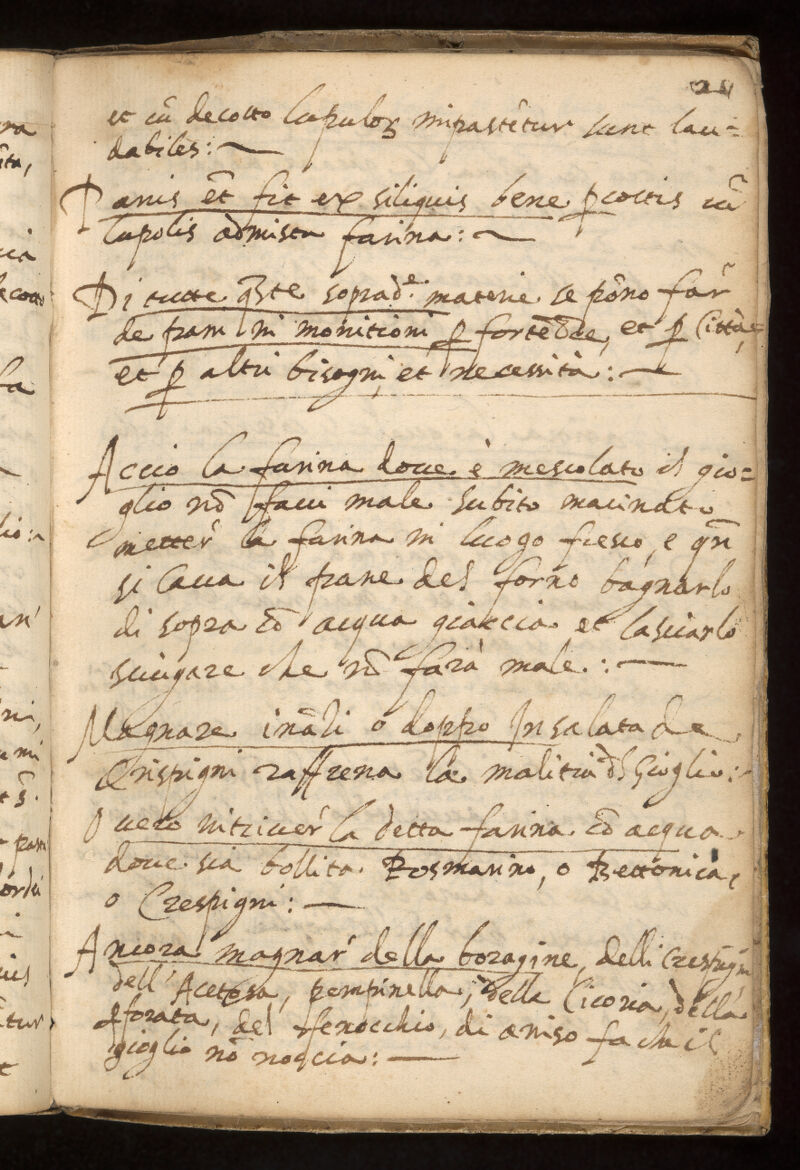 et cũ decotto lupuloꝝ impastẽtur sunt lau=
dabiles:
Panis ẽt fit ex siliquis bene ꝑcoctis cũ
lupolis admista farina:
Di tutte q̃ste soprad.e materie se põno far'
de pani in monitioni ꝑ fortezze, et ꝑ Città,
et ꝑ altri bisogni, et necessità:
Acciò la farina doue è mescolato il gio=
glio nõ facci male subito macinato
metter' la farina in luogo fresco, e qñ
si caua il pane del forno bagnarlo
di sopra cõ acqua giaccia et lasciarlo
sciugare che nõ farà male.:
Magnare inãzi o doppo Insalata de
Crispigni raffrena la malitia d̃l Gioglio:
Overo intriuer' la detta farina cõ acqua
doue sia bollita Rosmarino, o Bettonica,
o Crespigni:
Ancora magnar' della boragine, delli Crespigni
dell' Acetosa, pempinella, della Cicoria, della
ꝑforata, del fenocchio, di aniso fa che il
gioglio nõ noccia: